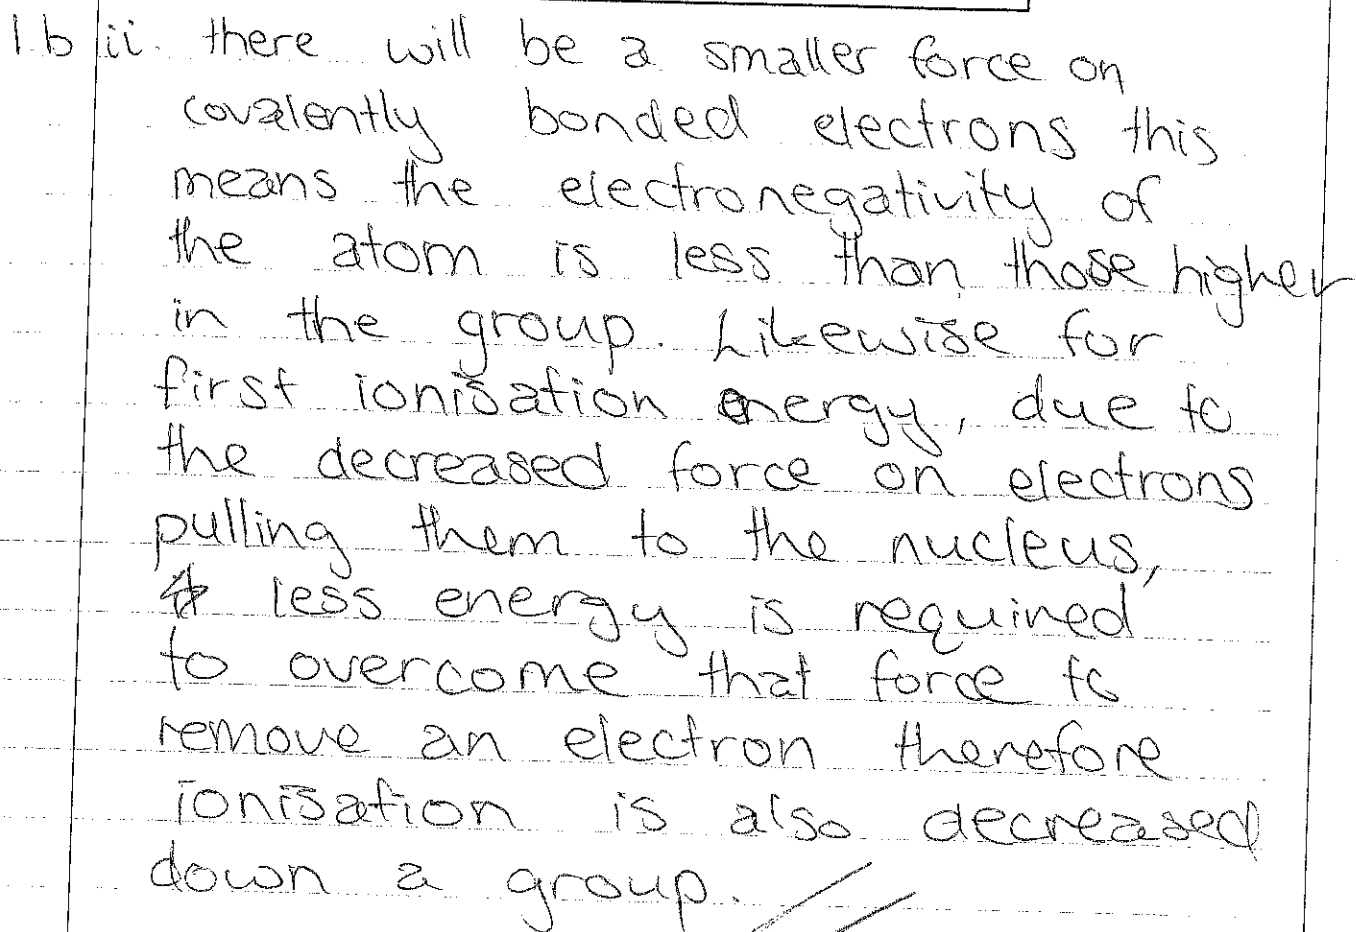 1.b ii. there will be a smaller force on
covalently bonded electrons this
means the electronegativity of
the atom is less than those higher
in the group. Likewise for
first ionisation energy, due to
the decreased force on electrons
pulling them to the nucleus,
less energy is required
to overcome that force to
remove an electron therefore
ionisation is also decreased
down a group.